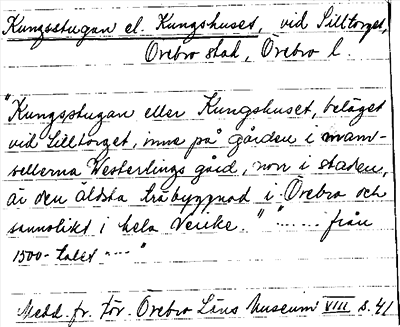 Kungsstugan el. Kungshuset, vid Silltorget,
Örebro stad, Örebro l.
"Kungsstugan eller Kungshuset, beläget
vid Silltorget, inne på gården i mam-
sellerna Westerlings gård, norr i staden,
är den äldsta träbyggnad i Örebro och
sannolikt i hela Nerike." "...... från
1500-talet ...."
Medd. fr. För. Örebro Läns Museum VIII s. 41